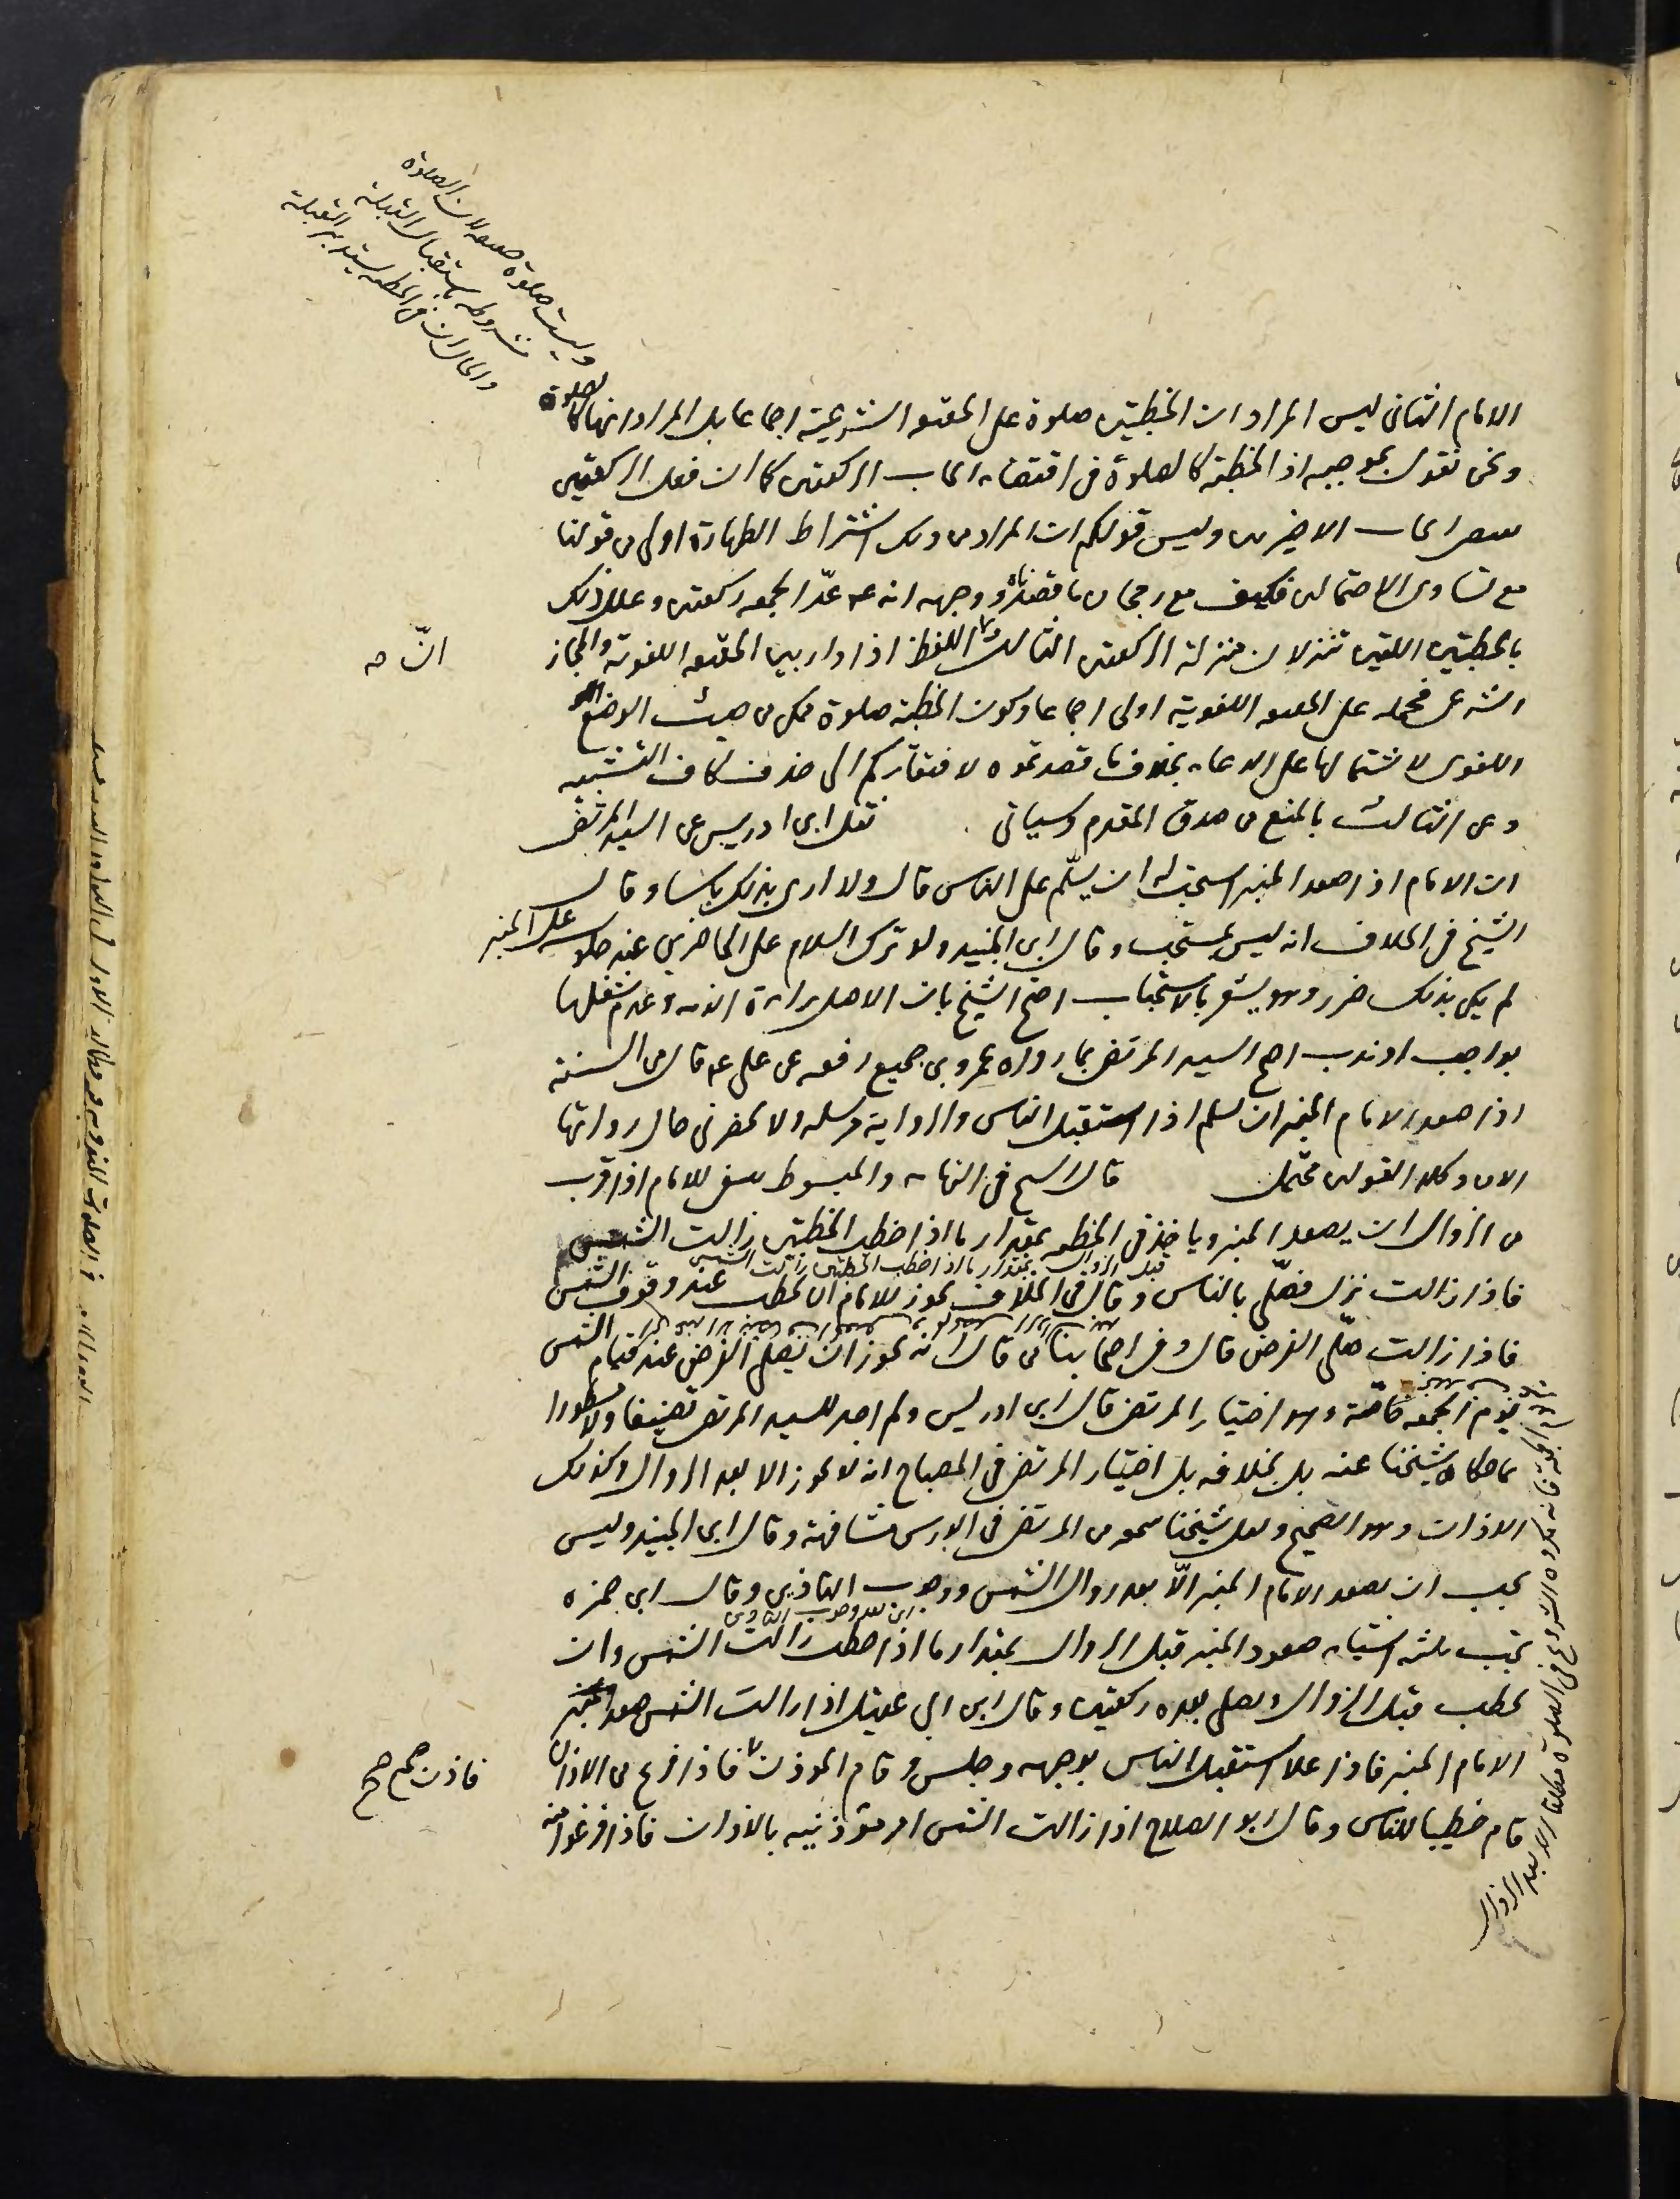 وليست صلوة حقيقة لان الصلوة
مشروطة باستقبال القبلة
والحال ان في الخطبة يستدبر القبلة
الامام الثاني ليس المراد ان الخطبتين صلوة على الحقيقة الشرعية اجماعا بل المراد انها كالصلوة
ونحن نقول بموجبه اذ الخطبة كالصلوة في اقتضاء ايجاب الركعتين كما ان فعل الركعتين
ايجاب الاخيرتين وليس قولكم ان المراد من ذلك اشتراط الطهارة اولى من قولنا
مع تساوي الاحتمالين فكيف مع رجحان ما قصدناه ووجهه انه ع عدّ الجمعة ركعتين وعلل ذلك
بالخطبتين اللتين تنزلان منزلة الركعتين الثالث اللفظ اذا دار بين الحقيقة اللغوية والمجاز
انّ صح
الشرعي فحمله على الحقيقة اللغوية اولى اجماعا وكون الخطبة صلوة ممكن من حيث الوضع
اللغوي لاشتمالها على الدعاء بخلاف ما قصدتموه لافتقاركم الى حذف كاف التشبيه
وعن الثالث بالمنع من صدق المقدم وسياتي نقل ابن ادريس عن السيد المرتضى
ان الامام اذا صعد المنبر استحب له ان يسلّم على الناس قال ولا ارى بذلك باسا وقال
الشيخ في الخلاف انه ليس بمستحب وقال ابن الجنيد ولو ترك السلام على الحاضرين عند جلوسه على المنبر
لم يكن بذلك ضرر وهو يشعر بالاستحباب احتج الشيخ بان الاصل براءة الذمة وعدم شغلها
بواجب او ندب احتج السيد المرتضى بما رواه عمرو بن جميع رفعه عن علي ع قال من السنة
اذا صعد الامام المنبر ان يسلم اذا استقبل الناس والرواية مرسلة ولا يحضرني حال رواتها
الان وكلا القولين محتمل قال الشيخ في النهاية والمبسوط ينبغي للامام اذا قرب
من الزوال ان يصعد المنبر وياخذ في الخطبة بمقدار ما اذا خطب الخطبتين زالت الشمس
قبل الزوال بمقدار ما اذا خطب الخطبتين زالت الشمس
فاذا زالت نزل فصلّى بالناس وقال في الخلاف يجوز للامام ان يخطب عند وقوف الشمس
فاذا زالت صلّى الفرض قال وفي اصحابنا من قال انه يجوز ان يصلي الفرض عند قيام الشمس
يوم الجمعة خاصّة وهو اختيار المرتضى قال ابن ادريس ولم اجد للسيد المرتضى تصنيفا ولا مسطورا
بما حكاه شيخنا عنه بل بخلافه بل اختيار المرتضى في المصباح انه لا يجوز الا بعد الزوال وكذلك
الاذان وهو الصحيح ولعل شيخنا سمعه من المرتضى في الدرس مشافهة وقال ابن الجنيد وليس
يجب ان يصعد الامام المنبر الّا بعد زوال الشمس ووجوب التاذين وقال ابن حمزه
يجب ثلثة اشياء صعود المنبر قبل الزوال بمقدار ما اذا خطب زالت الشمس وان
يخطب قبل الزوال ويصلي بعده ركعتين وقال ابن ابي عقيل اذا زالت الشمس صعد
الامام المنبر فاذا علا استقبل الناس بوجهه وجلس وقام الموذن فاذا فرغ من الاذان
فاذن صح
قام خطيبا للناس وقال ابو الصلاح اذا زالت الشمس امر مؤذنيه بالاذان فاذا فرغوا منه
الجمعة فانه مكروه الشروع في الصلوة مطلقا الا بعد الزوال